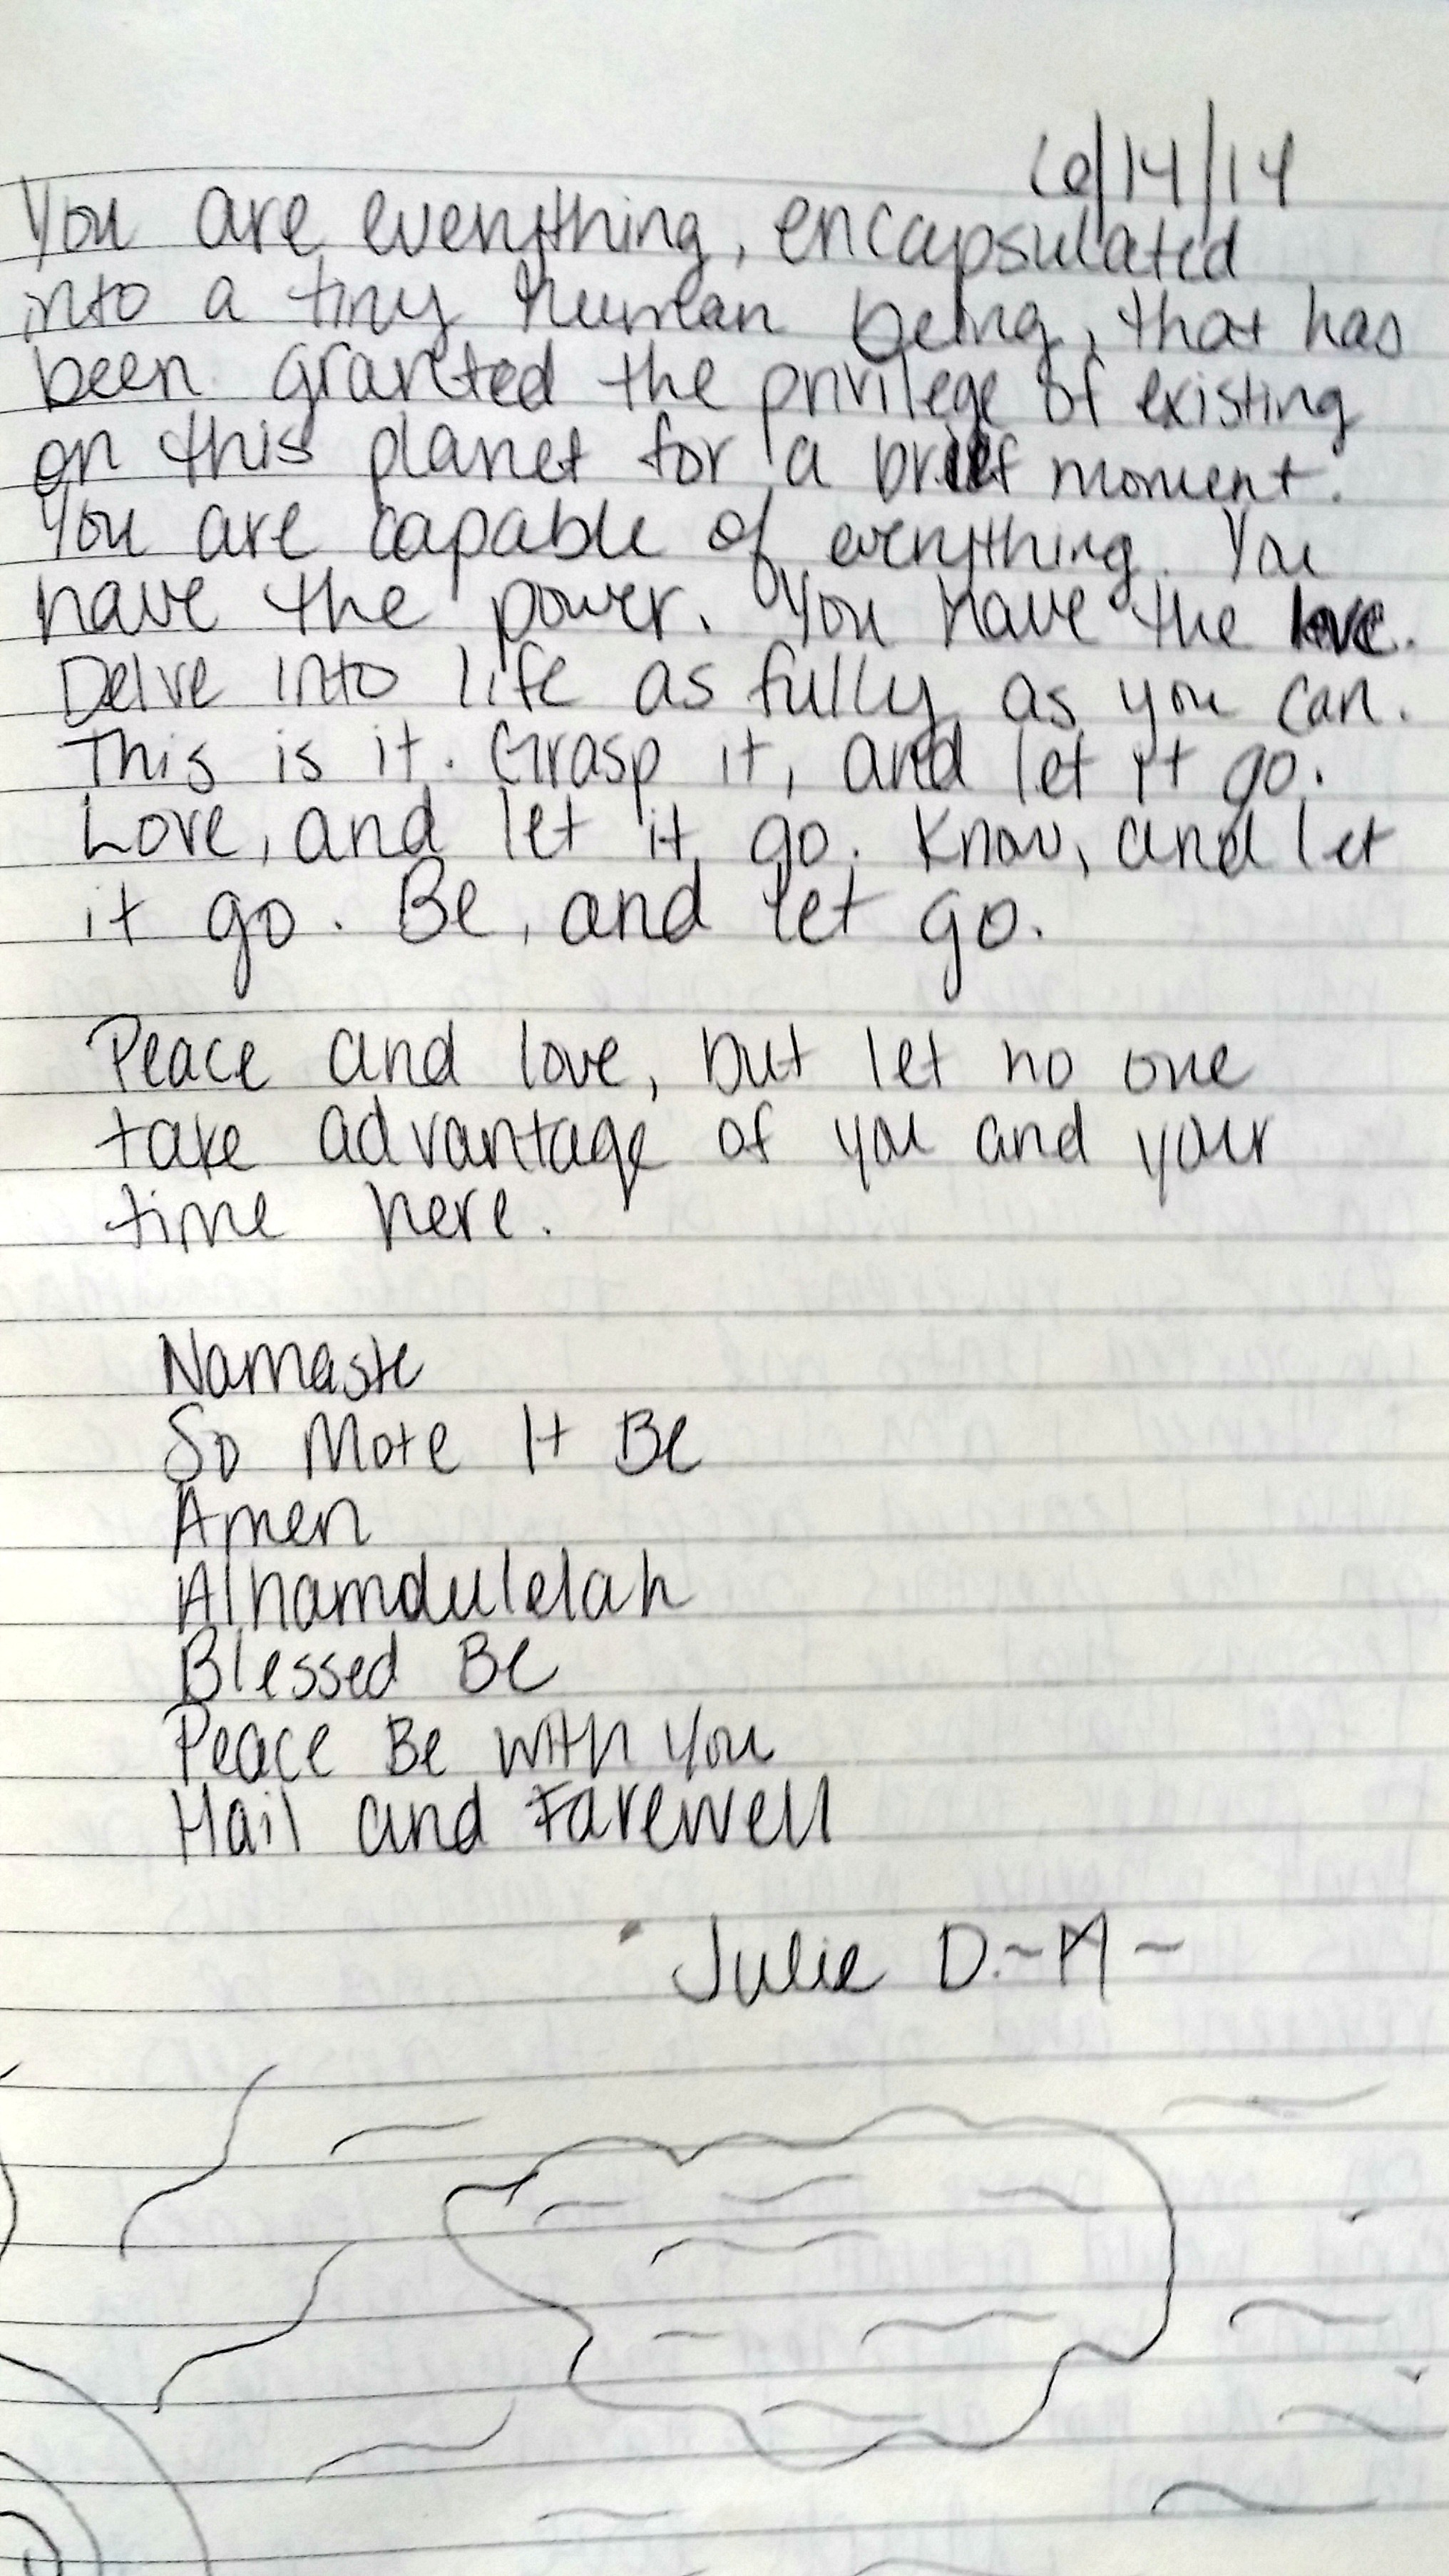 6/14/14
You are everything, encapsulated
into a tiny human being, that has
been granted the privilege of existing
on this planet for a brief moment.
You are capable of everything. You
have the power. You have the love.
Delve into life as fully as you can.
This is it. Grasp it, and let it go.
Love, and let it go. Know, and let
it go. Be, and let go.
Peace and love, but let no one
take advantage of you and your
time here.
Namaste
So Mote It Be
Amen
Alhamdulelah
Blessed Be
Peace Be With You
Hail and Farewell
Julie D.~M~